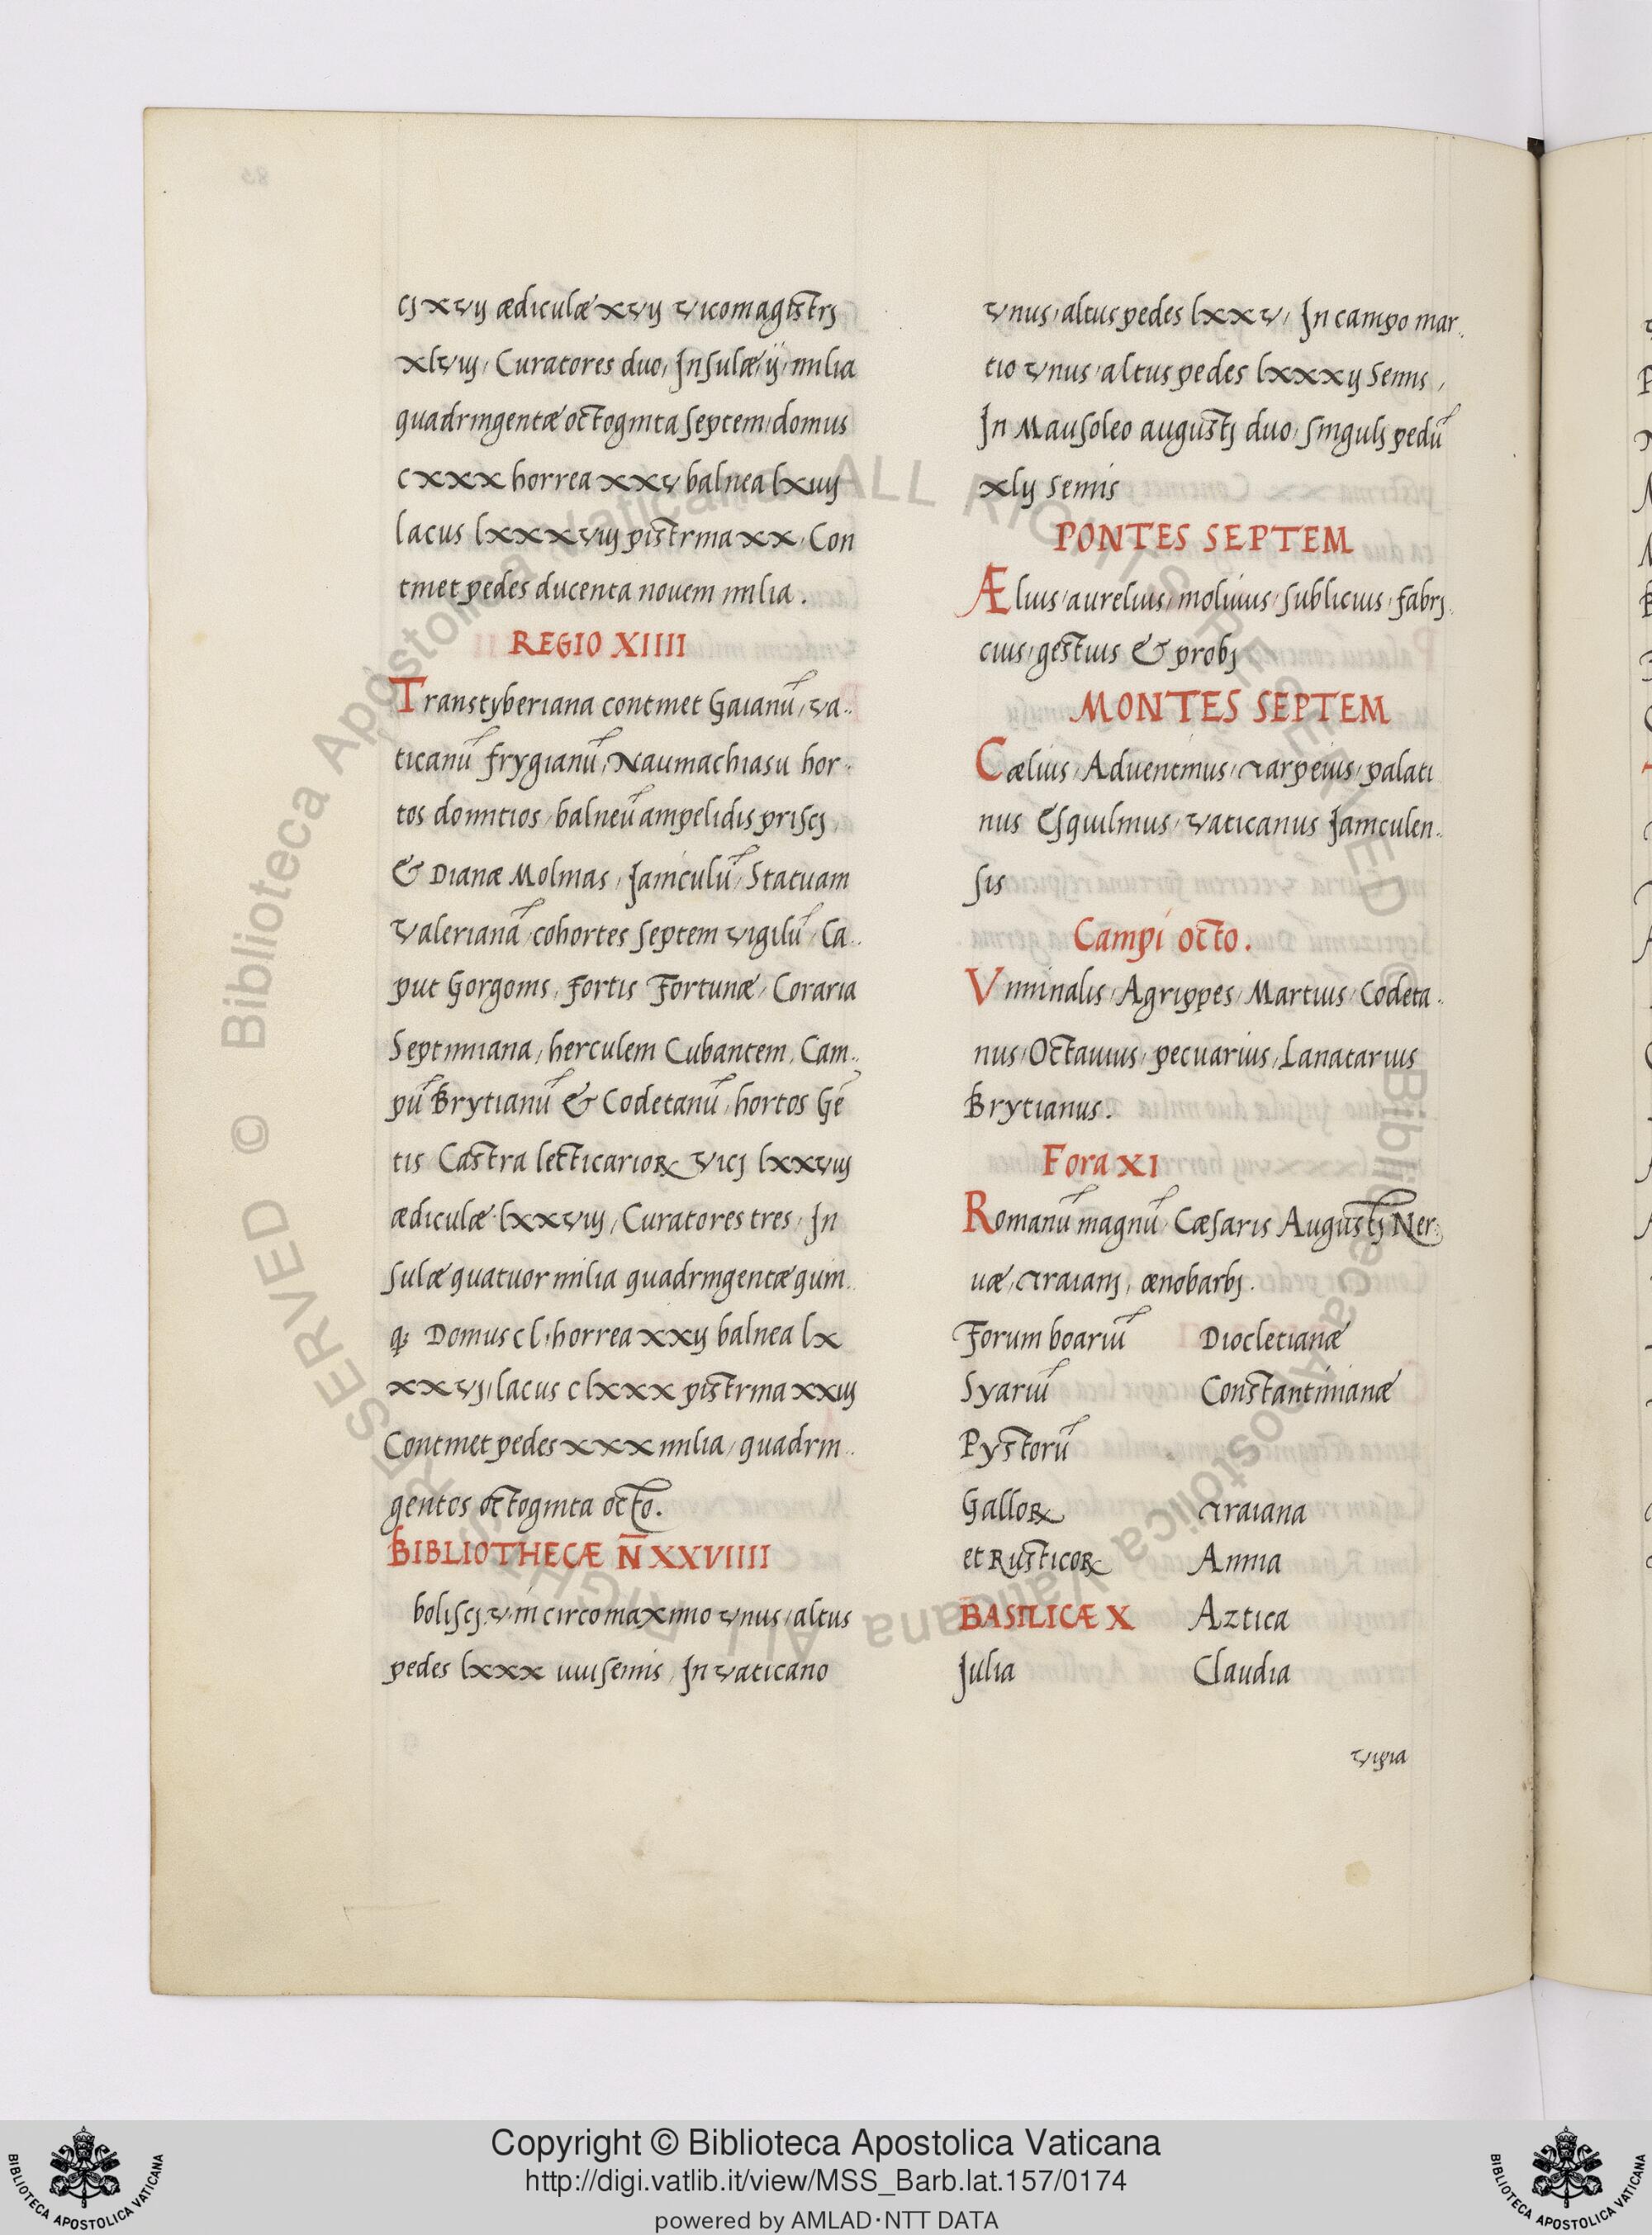 cj xvij ædiculæ xvij vicomagistrj
xlviij, Curatores duo, Insulæ, ij, milia
quadringentæ octoginta septem, domus
cxxx horrea xxv balnea lxiiij
lacus lxxxviij pistrina xx, Con
tinet pedes ducenta novem milia.
REGIO XIIII
Transtyberiana continet Gaianū, va..
ticanū frygianū, Naumachiasu hor..
tos domitios, balneū ampelidis priscj,
& Dianæ Molinas, Janiculū, Statuam
Valerianā, cohortes septem vigilū, Ca..
put Gorgonis, fortis Fortunæ, Coraria
Septimiana, herculem Cubantem, Cam..
pū Brytianū & Codetanū, hortos Gē
tis Castra lecticarioꝝ vicj lxxviij
ædiculæ lxxviij, Curatores tres, In
sulæ quatuor milia quadringentæ quin..
q; Domus cl, horrea xxij balnea lx
xxvj, lacus clxxx pistrina xxiij
Continet pedes xxx milia, quadrin..
gentos octoginta octo.
BIBLIOTHECÆ N̄ XXVIIII
boliscj v, in circo maximo vnus, altus
pedes lxxx uiiisemis, In vaticano
vnus, altus pedes lxxv, In campo mar..
tio vnus, altus pedes lxxxij semis,
In Mausoleo augustj duo, singulj pedū
xlij semis
PONTES SEPTEM
Ælius, aurelius, moliuius, sublicius, fabrj..
cius, gestius & probj
MONTES SEPTEM
Cælius, Aduentinus, Tarpeius, palati
nus Esquilinus, vaticanus Janiculen..
sis
Campi octo.
Viminalis, Agrippes, Martius, Codeta..
nus, Octauius, pecuarius, Lanatarius
Brytianus.
Fora XI
Romanū magnū, Cæsaris Augustj Ner..
uæ, Traianj, ænobarbj.
Forum boariū Diocletianæ
Syariū Constantinianæ
Pystorū
Galloꝝ Traiana
et Rusticoꝝ Annia
BASILICÆ X Aztica
Julia Claudia
vipia
© Biblioteca Apostolica Vaticana ALL RIGHTS RESERVED
© Biblioteca Apostolica Vaticana ALL RIGHTS RESERVED
Copyright © Biblioteca Apostolica Vaticana
http://digi.vatlib.it/view/MSS_Barb.lat.157/0174
powered by AMLAD·NTT DATA
BIBLIOTECA APOSTOLICA VATICANA
BIBLIOTECA APOSTOLICA VATICANA